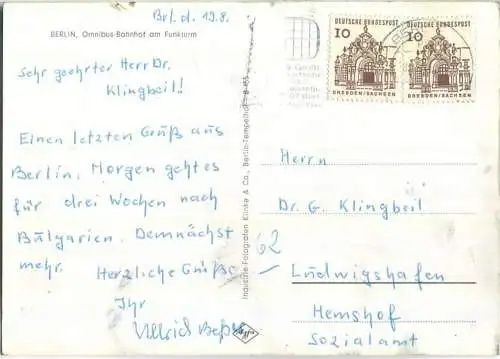 Brl. d. 19.8.
BERLIN, Omnibus-Bahnhof am Funkturm
Sehr geehrter Herr Dr.
Klingbeil!
Einen letzten Gruß aus
Berlin. Morgen geht es
für drei Wochen nach
Bulgarien. Demnächst
mehr.
Herzliche Grüße
Ihr
Ullrich
Industrie-Fotografen Klinke & Co., Berlin-Tempelhof
DEUTSCHE BUNDESPOST
10
DRESDEN/SACHSEN
DEUTSCHE BUNDESPOST
10
DRESDEN/SACHSEN
Herrn
Dr. G. Klingbeil
62
Ludwigshafen
Hemshof
Sozialamt